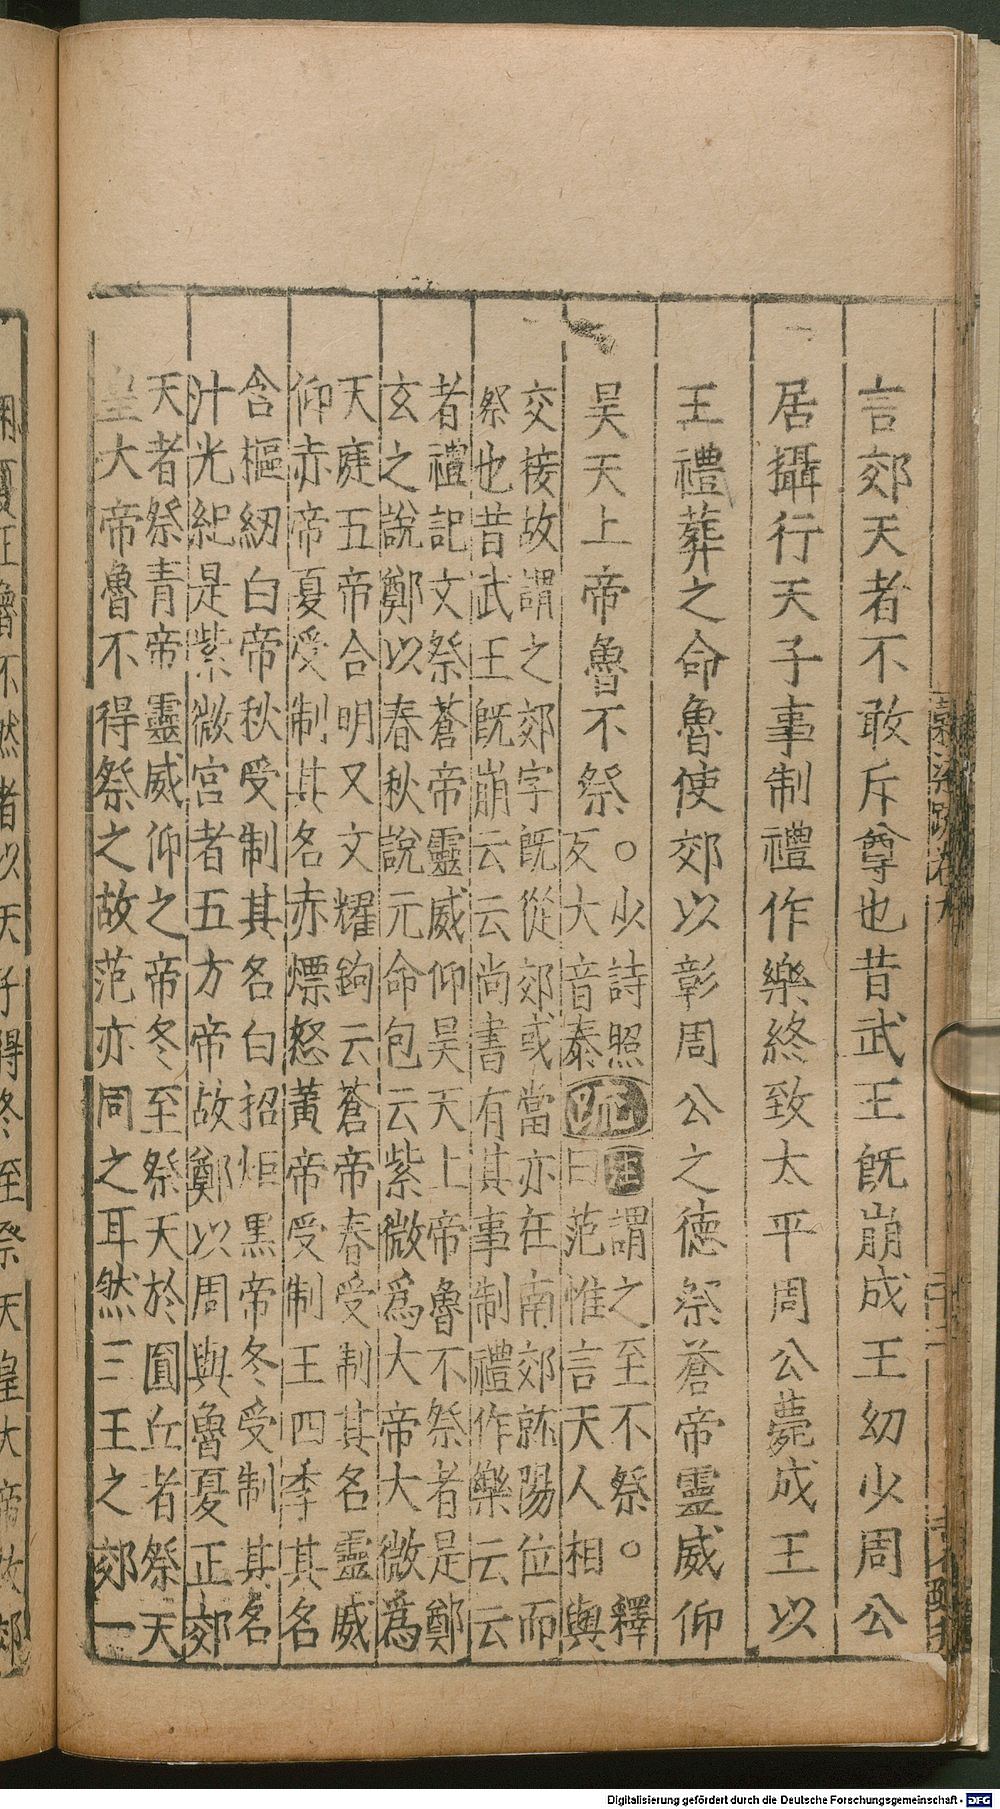 言郊天者不敢斥尊也昔武王旣崩成王幼少周公
居攝行天子事制禮作樂終致太平周公薨成王以
王禮葬之命魯使郊以彰周公之德祭蒼帝靈威仰
吴天上帝魯不祭○少詩照反大音泰疏注謂之至不祭○釋曰范惟言天人相與
交接故謂之郊字旣從郊或當亦在南郊就陽位而
祭也昔武王旣崩云云尚書有其事制禮作樂云云
者禮記文祭蒼帝靈威仰吴天上帝魯不祭者是鄭
玄之說鄭以春秋說元命包云紫微爲大帝大微爲
天庭五帝合明又文耀鉤云蒼帝春受制其名靈威
仰赤帝夏受制其名赤熛怒黄帝受制王四季其名
含樞紉白帝秋受制其名白招炬黒帝冬受制其名
汁光紀是紫微宫者五方帝故鄭以周與魯夏正郊
天者祭青帝靈威仰之帝冬至祭天於圓丘者祭天
皇大帝魯不得祭之故范亦同之耳然三王之郊一
穀梁疏卷九
二十二
夏正魯不然者以天子得冬至祭天皇大帝故郊
Digitalisierung gefördert durch die Deutsche Forschungsgemeinschaft - DFG